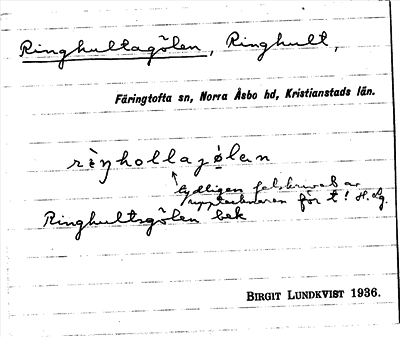 Ringhultagölen, Ringhult,
Färingtofta sn, Norra Åsbo hd, Kristianstads län.
rèŋhollagø̀lan
tydligen felskrivet av
upptecknaren för t! H.Lg.
Ringhultsgölen bek
BIRGIT LUNDKVIST 1936.